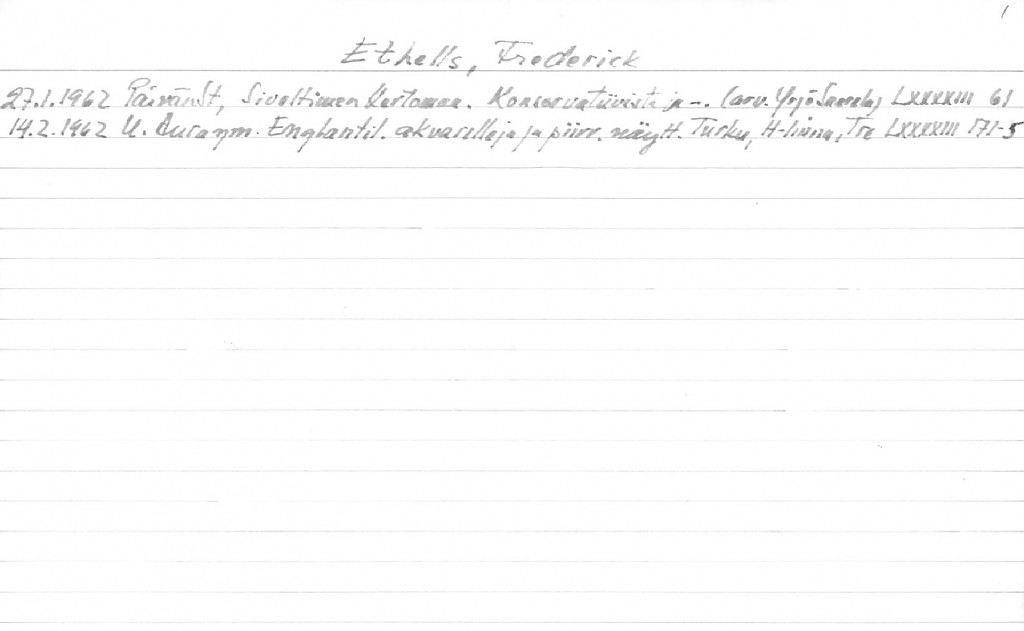 1
Ethells, Frederick
27.1.1962 PäivänSt, Siveltimen kertomaa. Konservatiivista ja -. (arv. Yrjö Saarela) LXXXXIII 61
14.2.1962 U. Aura ym. Englantil. akvarelleja ja piirr. näytt. Turku, H-linna, Tre LXXXXIII 171-5